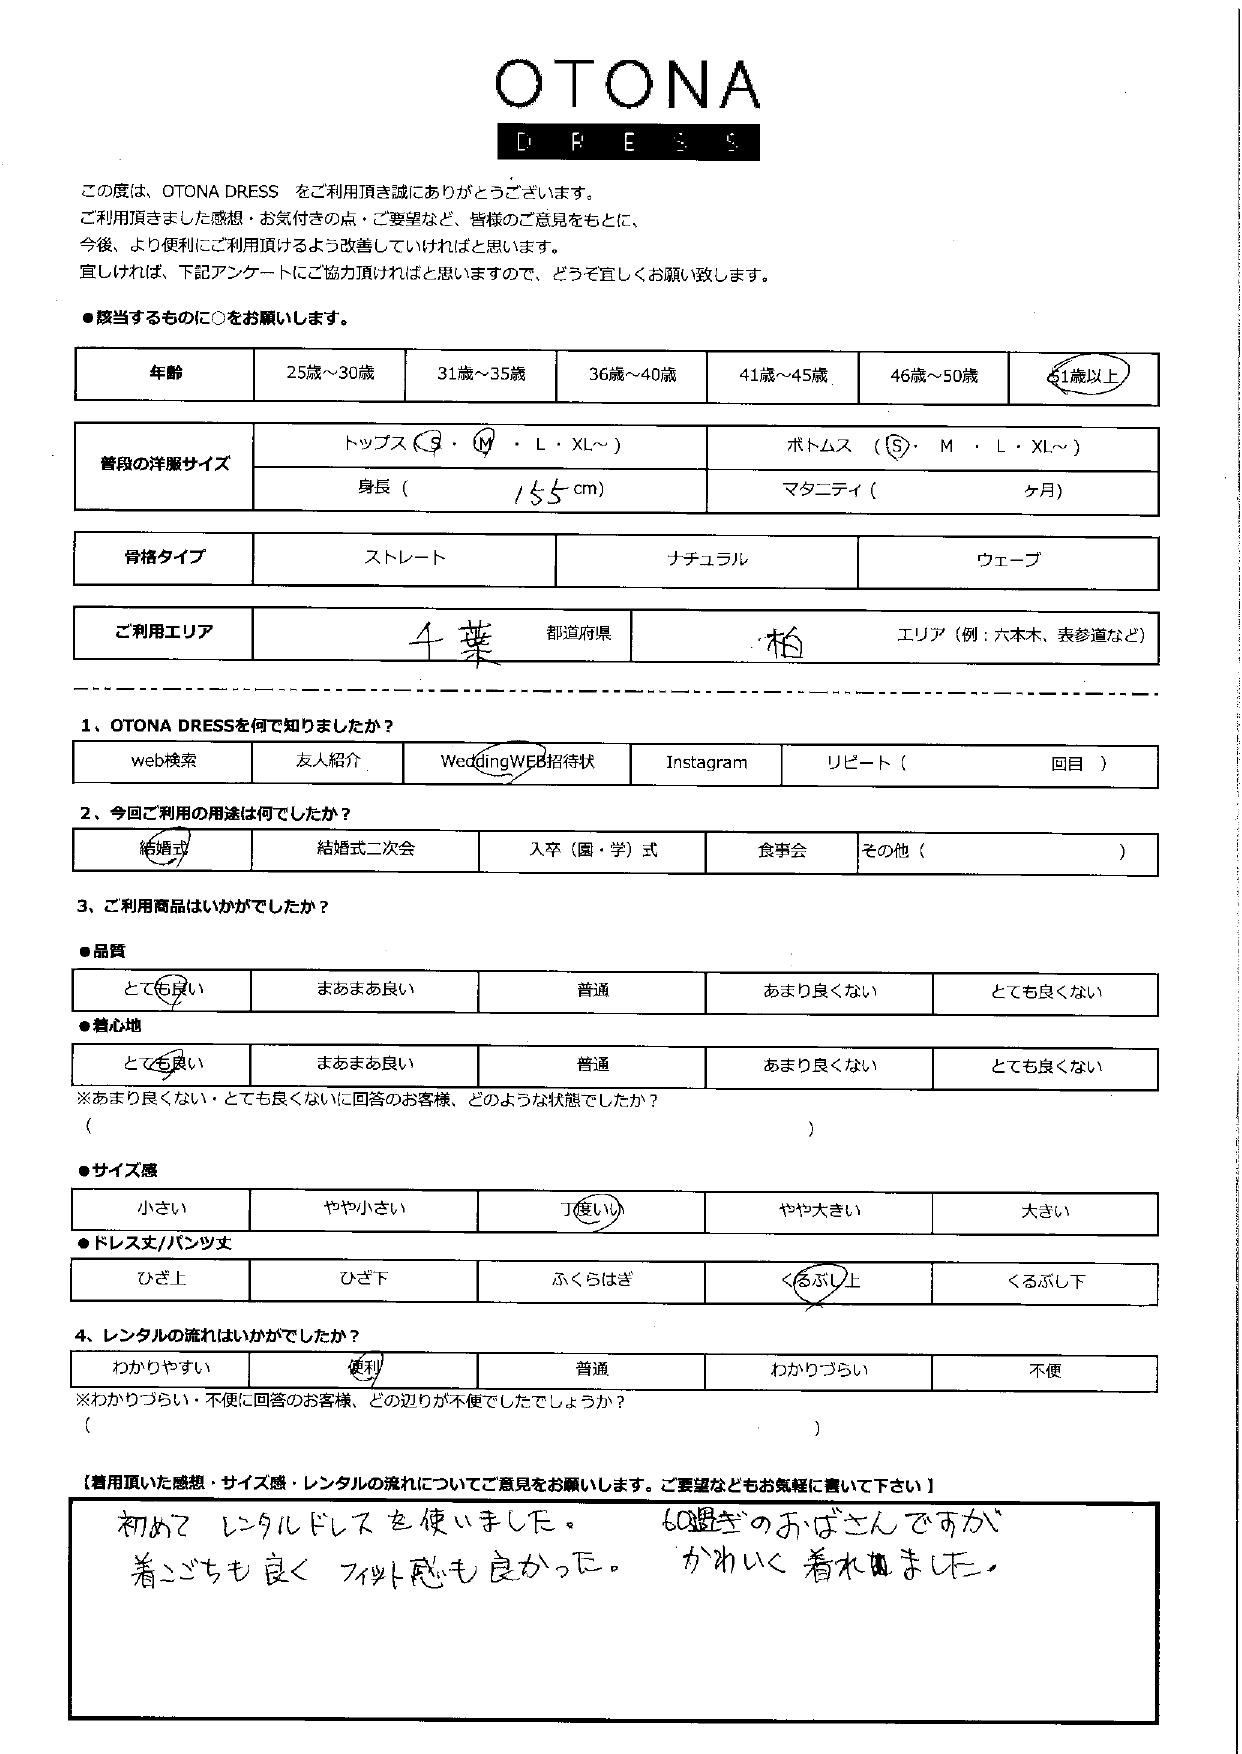 OTONA
DRESS
この度は、OTONA DRESS　をご利用頂き誠にありがとうございます。
ご利用頂きました感想・お気付きの点・ご要望など、皆様のご意見をもとに、
今後、より便利にご利用頂けるよう改善していければと思います。
宜しければ、下記アンケートにご協力頂ければと思いますので、どうぞ宜しくお願い致します。
●該当するものに○をお願いします。
年齢 25歳～30歳 31歳～35歳 36歳～40歳 41歳～45歳 46歳～50歳 51歳以上
普段の洋服サイズ トップス（S・ M ・ L ・ XL～ ） ボトムス （S・ M ・ L ・ XL～ ）
身長（ 155 cm） マタニティ（ ヶ月）
骨格タイプ ストレート ナチュラル ウェーブ
ご利用エリア 千葉 都道府県 柏 エリア（例：六本木、表参道など）
1、OTONA DRESSを何で知りましたか？
web検索 友人紹介 WeddingWEB招待状 Instagram リピート（ 回目 ）
2、今回ご利用の用途は何でしたか？
結婚式 結婚式二次会 入卒（園・学）式 食事会 その他（ ）
3、ご利用商品はいかがでしたか？
●品質
とても良い まあまあ良い 普通 あまり良くない とても良くない
●着心地
とても良い まあまあ良い 普通 あまり良くない とても良くない
※あまり良くない・とても良くないに回答のお客様、どのような状態でしたか？
（ ）
●サイズ感
小さい やや小さい 丁度いい やや大きい 大きい
●ドレス丈/パンツ丈
ひざ上 ひざ下 ふくらはぎ くるぶし上 くるぶし下
4、レンタルの流れはいかがでしたか？
わかりやすい 便利 普通 わかりづらい 不便
※わかりづらい・不便に回答のお客様、どの辺りが不便でしたでしょうか？
（ ）
【着用頂いた感想・サイズ感・レンタルの流れについてご意見をお願いします。ご要望などもお気軽に書いて下さい】
初めて レンタルドレスを使いました。 60過ぎのおばさんですが
着ごごちも良く フィット感も良かった。 かわいく着れました。